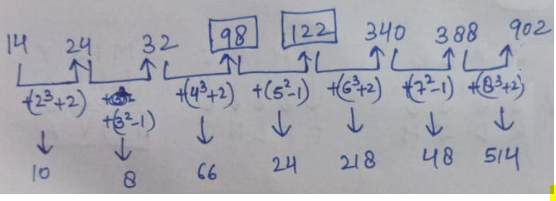 14 24 32 98 122 340 388 902
+(2³+2) +(3²-1) +(4³+2) +(5²-1) +(6³+2) +(7²-1) +(8³+2)
10 8 66 24 218 48 514